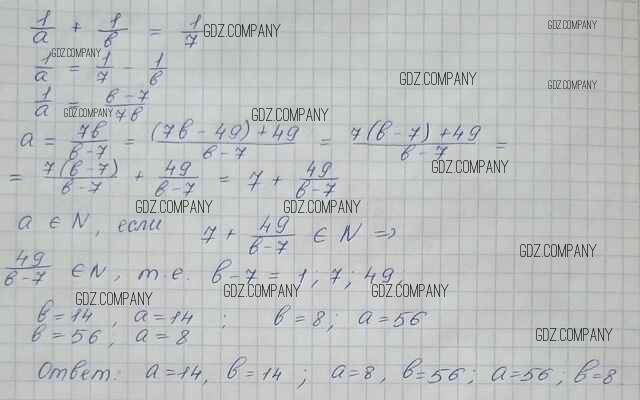 1/a + 1/в = 1/7 GDZ.COMPANY GDZ.COMPANY
GDZ.COMPANY
1/a = 1/7 - 1/в
GDZ.COMPANY GDZ.COMPANY
1/a = в-7/7в
GDZ.COMPANY GDZ.COMPANY
a = 7в/в-7 = (7в-49)+49/в-7 = 7(в-7)+49/в-7 =
GDZ.COMPANY
= 7(в-7)/в-7 + 49/в-7 = 7 + 49/в-7
GDZ.COMPANY GDZ.COMPANY
a ∈ N, если 7 + 49/в-7 ∈ N =>
GDZ.COMPANY
49/в-7 ∈ N, т.е. в-7 = 1; 7; 49.
GDZ.COMPANY GDZ.COMPANY GDZ.COMPANY
в=14, a=14; в=8; a=56
в=56, a=8
GDZ.COMPANY
Ответ: a=14, в=14; a=8, в=56; a=56; в=8